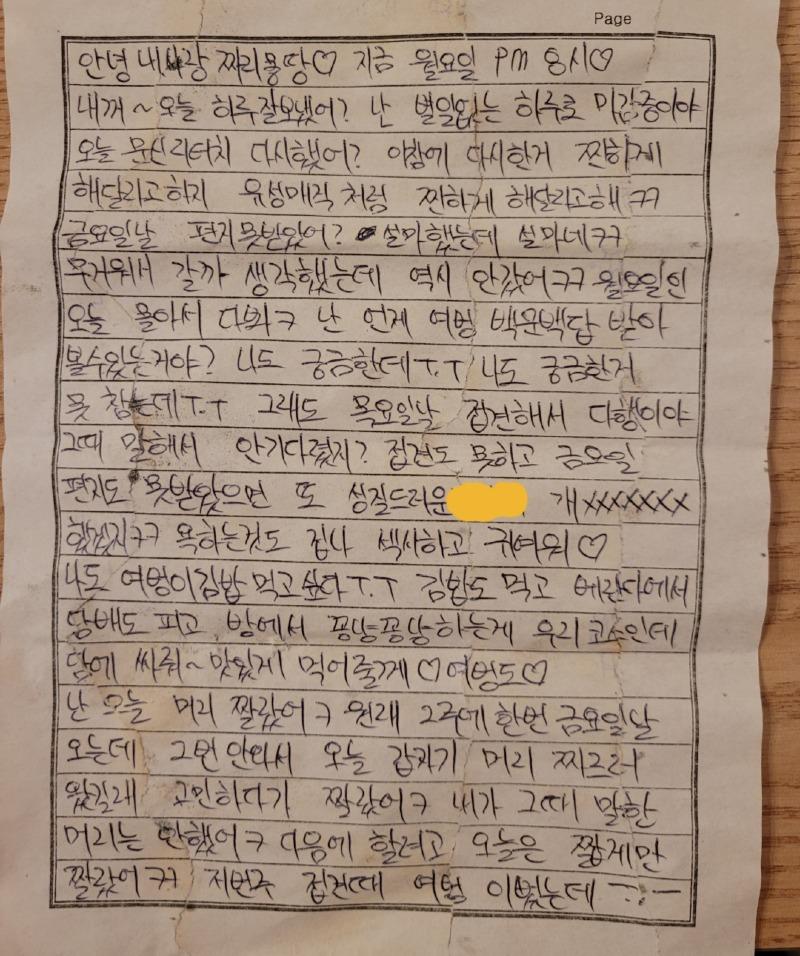 Page
안녕 내사랑 짜리몽땅♡ 지금 월요일 PM 8시♡
내꺼~ 오늘 하루 잘보냈어? 난 별일없는 하루로 마감중이야
오늘 문신 리터치 다시했어? 이참에 다시한거 찐하게
해달라고하지 유성매직 처럼 찐하게 해달라고해ㅋㅋ
금요일날 편지 못받았어? 설마했는데 설마네ㅋㅋ
무거워서 갈까 생각했는데 역시 안갔어ㅋㅋ 월요일인
오늘 몰아서 다봐ㅋ 난 언제 여벙 백문백답 받아
볼수있는거야? 나도 궁금한데T.T 나도 궁금한거
못 참는데T.T 그래도 목요일날 접견해서 다행이야
그때 말해서 안기다렸지? 접견도 못하고 금요일
편지도 못받았으면 또 성질드러운 개xxxxxxx
했겠지ㅋㅋ 욕하는것도 집나 섹시하고 귀여워♡
나도 여벙이김밥 먹고싶다T.T 김밥도 먹고 베란다에서
담배도 피고 방에서 퐁냥퐁냥하는게 우리코스인데
담에 싸줘~ 맛있게 먹어줄께♡여벙도♡
난 오늘 머리 짤랐어ㅋ 원래 2주에 한번 금요일날
오는데 그먼 안와서 오늘 갑자기 머리 찌르러
왔길래 고민하다가 짤랐어ㅋ 내가 그때 말한
머리는 안했어ㅋ 다음에 할려고 오늘은 짧게만
짤랐어ㅋㅋ 저번주 접견때 여벙 이뻤는데 ㅡ.ㅡ